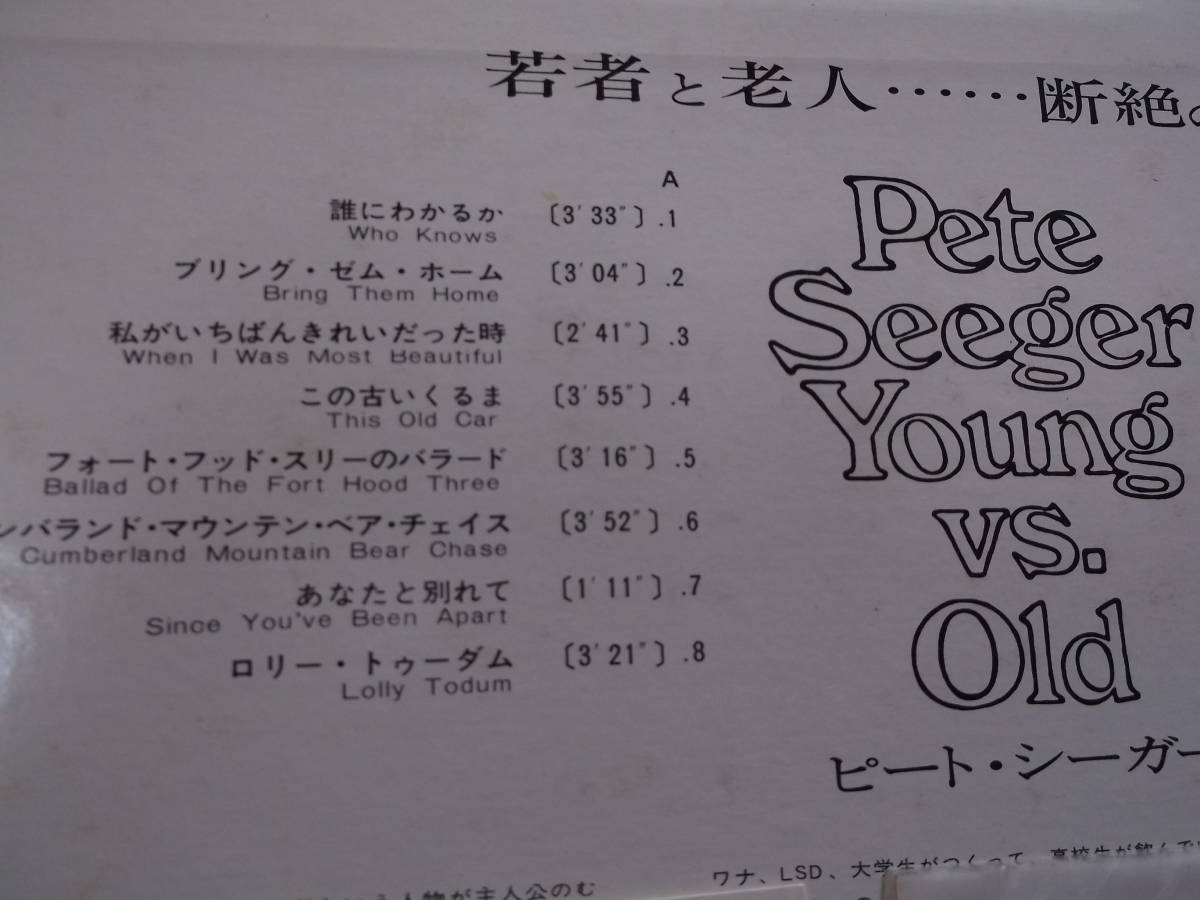 若者と老人……断絶
A
誰にわかるか 〔3′33″〕.1
Who Knows
ブリング・ゼム・ホーム 〔3′04″〕.2
Bring Them Home
私がいちばんきれいだった時 〔2′41″〕.3
When I Was Most Beautiful
この古いくるま 〔3′55″〕.4
This Old Car
フォート・フッド・スリーのバラード 〔3′16″〕.5
Ballad Of The Fort Hood Three
ンバランド・マウンテン・ベア・チェイス 〔3′52″〕.6
Cumberland Mountain Bear Chase
あなたと別れて 〔1′11″〕.7
Since You've Been Apart
ロリー・トゥーダム 〔3′21″〕.8
Lolly Todum
Pete
Seeger
Young
vs.
Old
ピート・シーガー
ワナ、LSD、大学生がつくって、高校生が飲んで
人物が主人公のむ